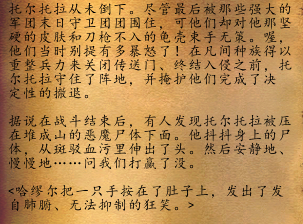 托尔托拉从未倒下。尽管最后被那些强大的
军团末日守卫团团围住，可他们却对他那坚
硬的皮肤和刀枪不入的龟壳束手无策。喔，
他们当时别提有多暴怒了！在凡间种族得以
重整兵力来关闭传送门、终结入侵之前，托
尔托拉守住了阵地，并掩护他们完成了决
定性的撤退。
据说在战斗结束后，有人发现托尔托拉被压
在堆成山的恶魔尸体下面。他抖抖身上的尸
体，从斑驳血污里伸出了头。然后安静地、
慢慢地……问我们打赢了没。
<哈缪尔把一只手按在了肚子上，发出了发
自肺腑、无法抑制的狂笑。>